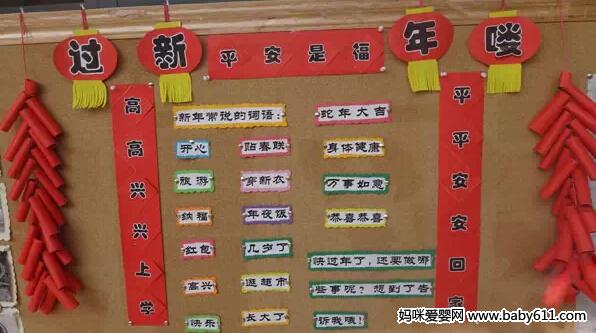 过新年喽
平安是福
高高兴兴上学
平平安安回家
新年常说的词语：
蛇年大吉
开心
贴春联
身体健康
旅游
穿新衣
万事如意
纳福
年夜饭
恭喜恭喜
红包
几岁了
快过年了，还要做哪
高兴
逛超市
些事呢？想到了告
快乐
长大了
诉我哦！
妈咪爱婴网
www.baby611.com